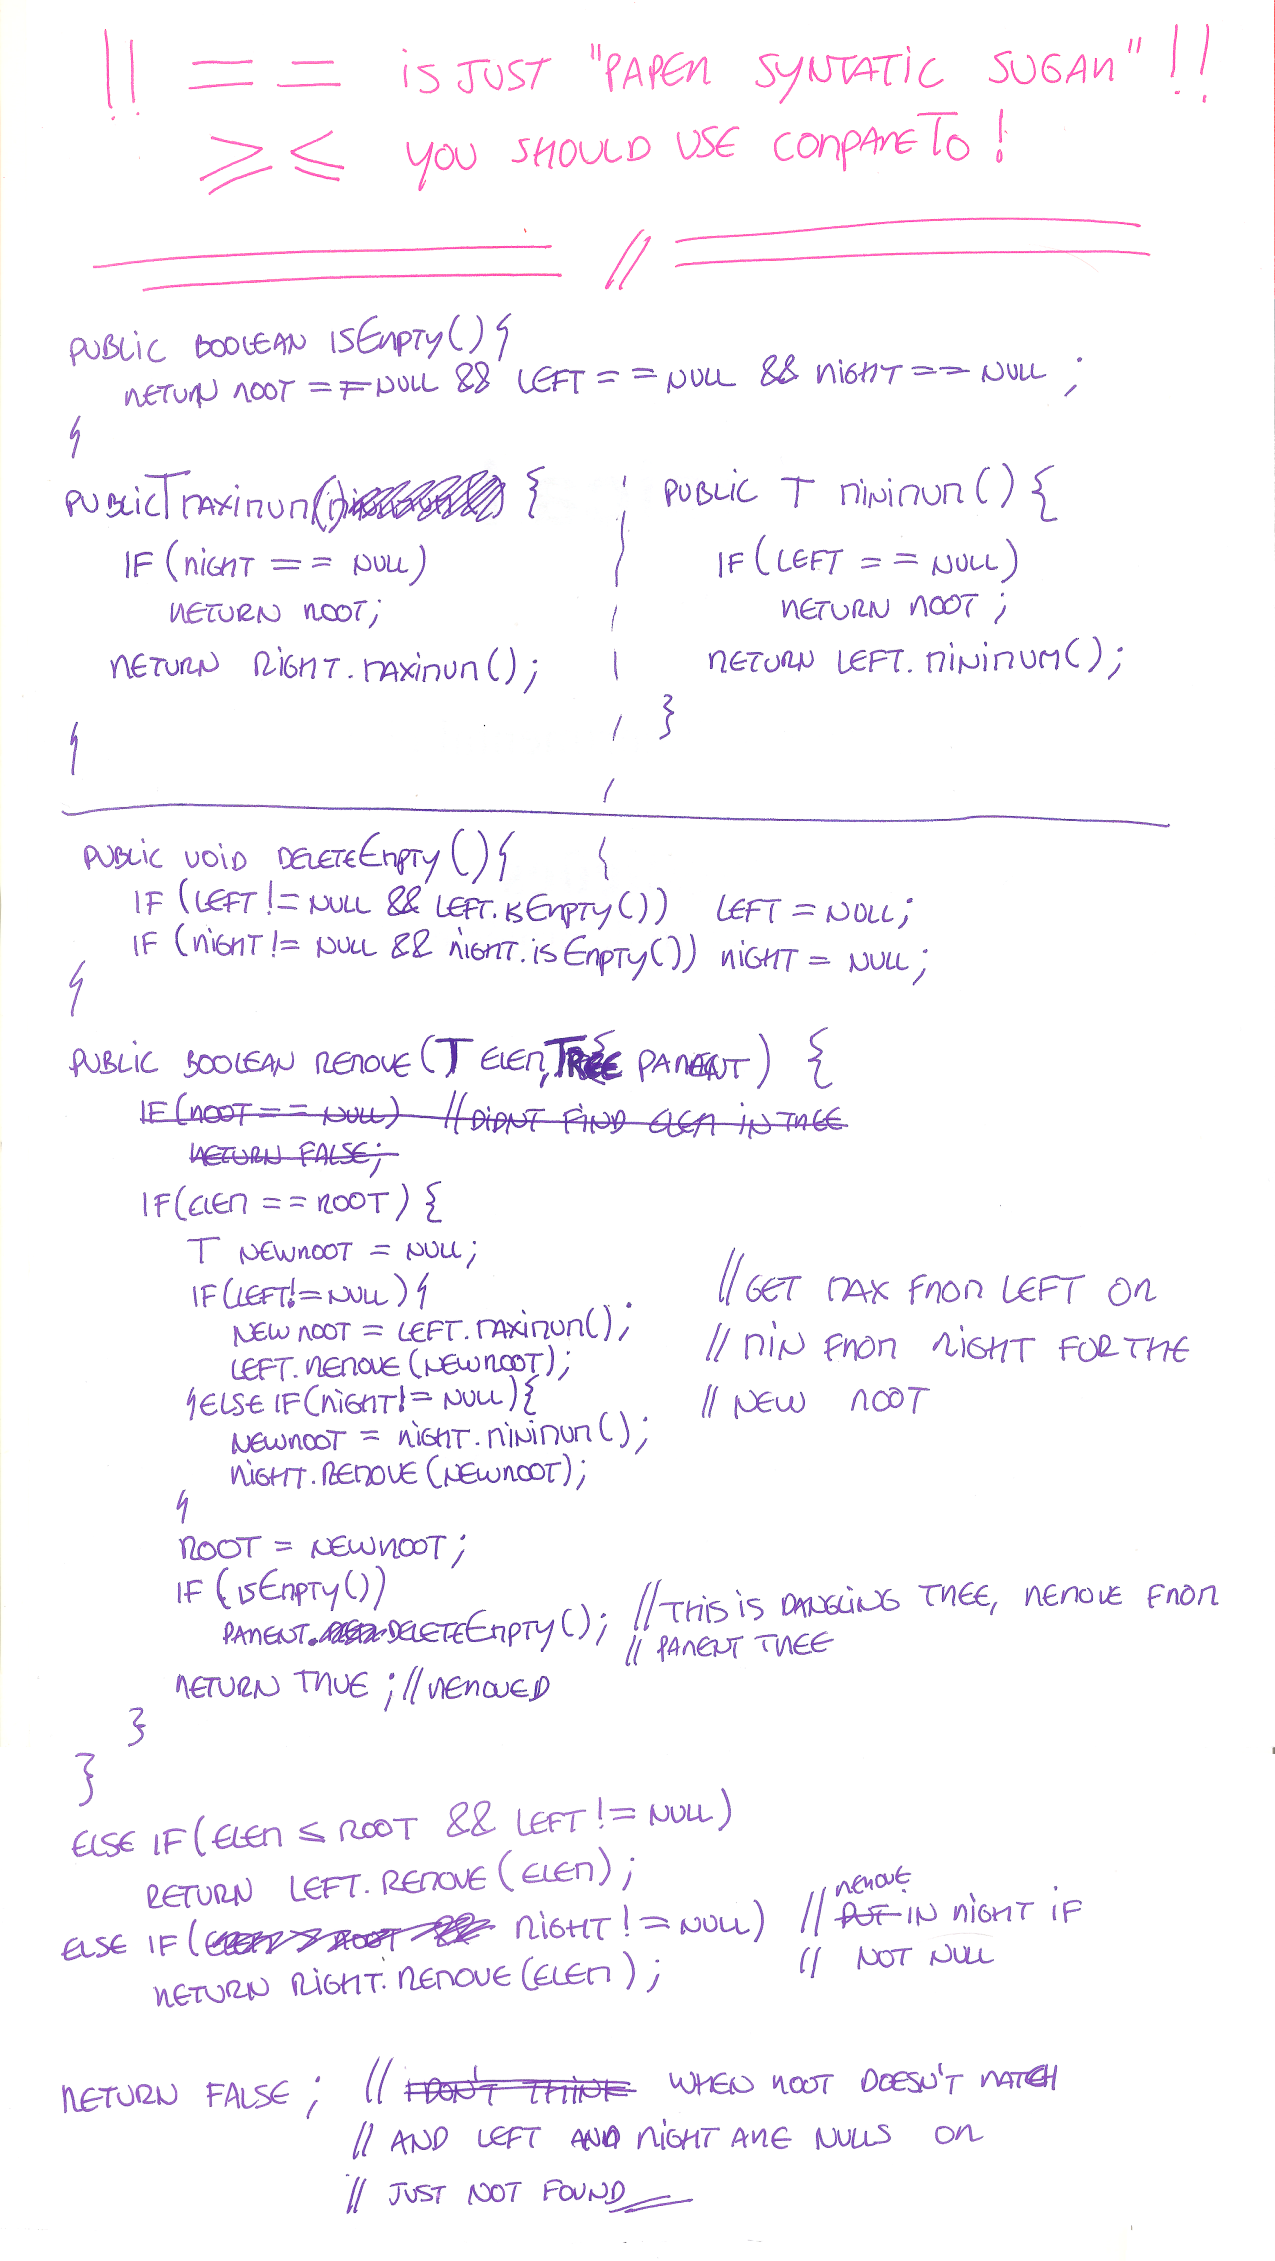 !! == IS JUST "PAPER SYNTATIC SUGAR" !!
≥ ≤ YOU SHOULD USE COMPARETO!
//
PUBLIC BOOLEAN ISEMPTY(){
RETURN ROOT == NULL && LEFT == NULL && RIGHT == NULL ;
}
PUBLIC T MAXIMUM() {
IF (RIGHT == NULL)
RETURN ROOT;
RETURN RIGHT.MAXIMUM();
}
PUBLIC T MINIMUM() {
IF (LEFT == NULL)
RETURN ROOT ;
RETURN LEFT.MINIMUM();
}
PUBLIC VOID DELETEEMPTY(){
IF (LEFT != NULL && LEFT.ISEMPTY()) LEFT = NULL;
IF (RIGHT != NULL && RIGHT.ISEMPTY()) RIGHT = NULL;
}
PUBLIC BOOLEAN REMOVE(T ELEM, TREE PARENT) {
IF(ROOT == NULL) //DIDNT FIND ELEM IN TREE
RETURN FALSE;
IF(ELEM == ROOT) {
T NEWROOT = NULL;
IF(LEFT != NULL){
NEWROOT = LEFT.MAXIMUM();
LEFT.REMOVE(NEWROOT);
}ELSE IF(RIGHT != NULL){
NEWROOT = RIGHT.MINIMUM();
RIGHT.REMOVE(NEWROOT);
}
//GET MAX FROM LEFT OR
// MIN FROM RIGHT FOR THE
// NEW ROOT
ROOT = NEWROOT;
IF (ISEMPTY())
PARENT.DELETEEMPTY(); //THIS IS DANGLING TREE, REMOVE FROM
// PARENT TREE
RETURN TRUE ; //REMOVED
}
}
ELSE IF(ELEM ≤ ROOT && LEFT != NULL)
RETURN LEFT.REMOVE(ELEM);
ELSE IF(ELEM > ROOT && RIGHT != NULL) // PUT REMOVE IN RIGHT IF
// NOT NULL
RETURN RIGHT.REMOVE(ELEM);
RETURN FALSE ; // I DON'T THINK WHEN ROOT DOESN'T MATCH
// AND LEFT AND RIGHT ARE NULLS OR
// JUST NOT FOUND